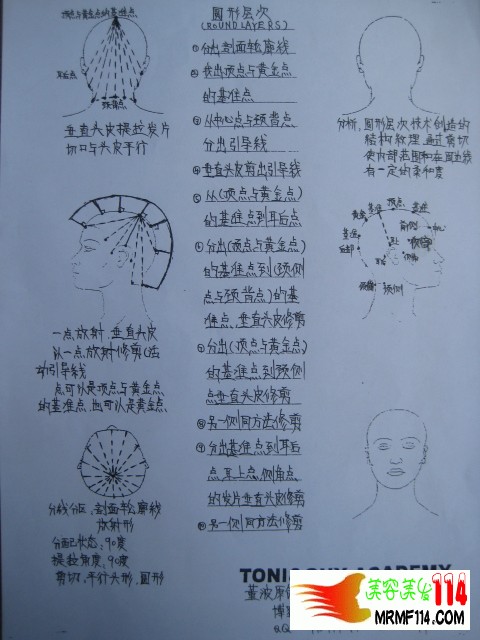 顶点与黄金点的基准点
耳后点
颈背点
垂直头皮提拉发片
切口与头皮平行
一点放射，垂直头皮
从一点放射修剪
动引导线
点可以是顶点与黄金点
的基准点，也可以是黄金点
分线分区，剖面轮廓线
放射形
分配状态，90度
提拉角度，90度
剪切，平行头形，圆形
圆形层次
(ROUND LAYERS)
①分出剖面轮廓线
②找出顶点与黄金点
的基准点
③从中心点与颈背点
分出引导线
④垂直头皮剪出引导线
⑤从(顶点与黄金点)
的基准点到耳后点
⑥分出(顶点与黄金点)
的基准点到(颈侧
点与颈背点)的基
准点，垂直头皮修剪
⑦分出(顶点与黄金点)
的基准点到颈侧
点垂直头皮修剪
⑧另一侧同方法修剪
⑨分出基准点到耳后
点，耳上点，侧角点
的发片垂直头皮修剪
⑩另一侧同方法修剪
分析，圆形层次技术创造的
结构纹理，通过剪切
使内部范围和在周边线
有一定的柔和度
顶点
黄金
基准
基准
前侧
中心
后部
颈侧
TONI&GUY ACADEMY
美容美发114
MRMF114.COM